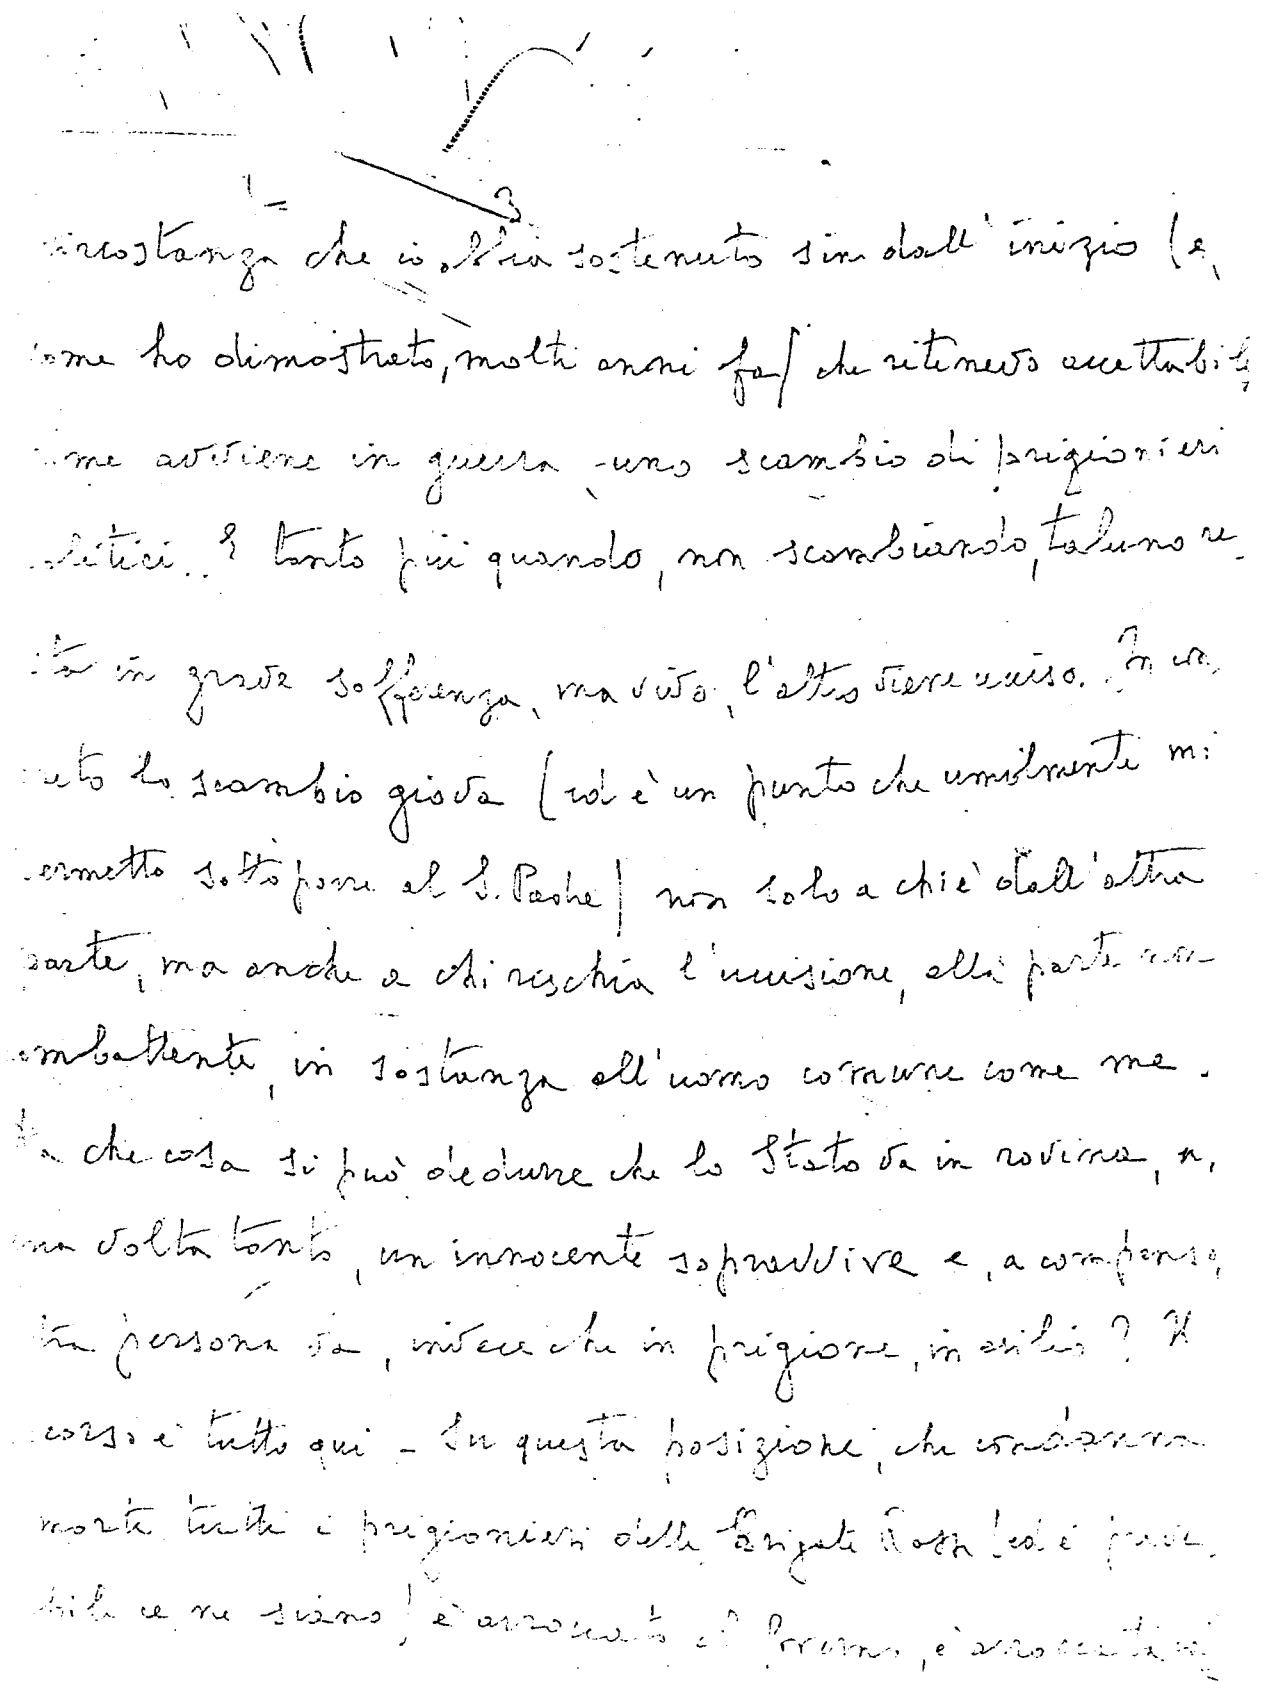 3
circostanza che io abbia sostenuto sin dall'inizio (e,
come ho dimostrato, molti anni fa) che ritenevo accettabile
come avviene in guerra - uno scambio di prigionieri
politici. E tanto più quando, non scambiando, taluno re
sta in grave sofferenza, ma vivo, l'altro viene ucciso. In con
creto lo scambio giova (ed è un punto che umilmente mi
permetto sottoporre al S. Padre) non solo a chi è dall'altra
parte, ma anche a chi rischia l'uccisione, alla parte non
combattente, in sostanza all'uomo comune come me.
Da che cosa si può dedurre che lo Stato va in rovina, se,
una volta tanto, un innocente sopravvive e, a compenso,
altra persona va, invece che in prigione, in esilio? Il
discorso è tutto qui - Su questa posizione, che condanna
morte tutti i prigionieri delle Brigate Rosse (ed è preve
dibile ce ne siano) è arroccato il Governo, è arroccata